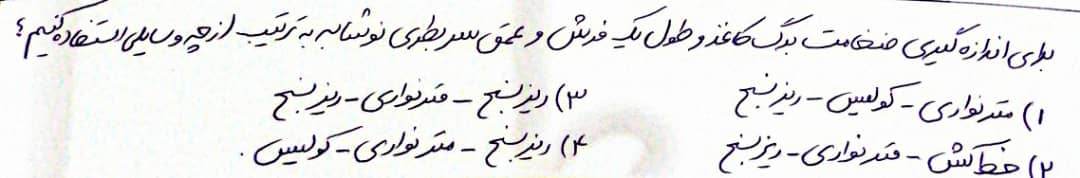 برای اندازه گیری ضخامت برگ کاغذ و طول یک فرش و عمق سر بطری نوشابه به ترتیب از چه وسایلی استفاده کنیم؟
۱) متر نواری - کولیس - ریزسنج ۳) ریزسنج - متر نواری - ریزسنج
۲) خط کش - متر نواری - ریزسنج ۴) ریزسنج - متر نواری - کولیس.